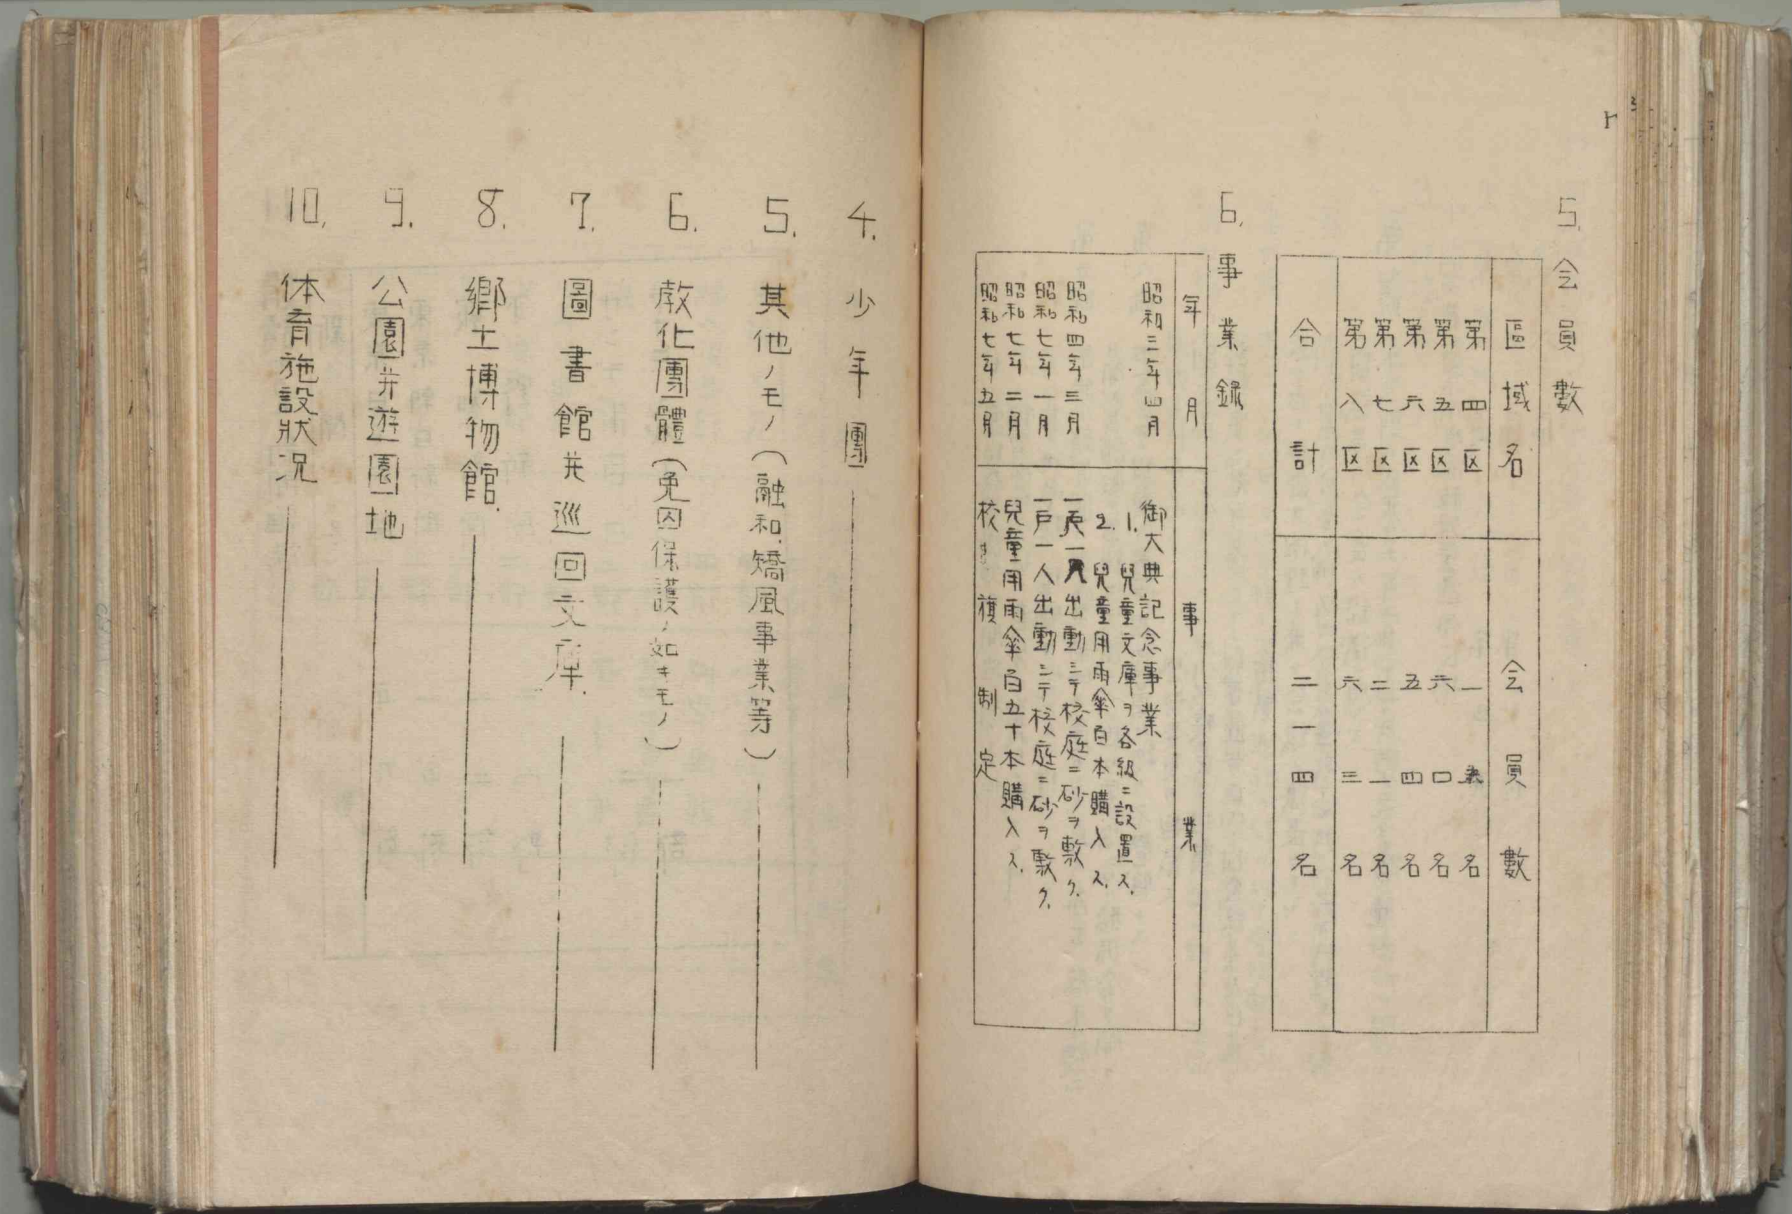 5.会員數
區域名 会員數
第四区 一名
第五区 六〇名
第六区 五四名
第七区 二一名
第八区 六三名
合計 二一四名
6.事業録
年月 事業
昭和三年四月 御大典記念事業
1.兒童文庫ヲ各級ニ設置ス.
2.兒童用雨傘百本購入ス.
昭和四年三月 一戸一人出動ニテ校庭ニ砂ヲ敷ク.
昭和七年一月 一戸一人出動ニテ校庭ニ砂ヲ敷ク.
昭和七年二月 兒童用雨傘百五十本購入ス.
昭和七年五月 校旗制定
4.少年團
5.其他ノモノ(融和.矯風事業等)
6.教化團體(免囚保護ノ如キモノ)
7.圖書館并巡回文庫.
8.郷土博物館.
9.公園并遊園地
10.体育施設狀況